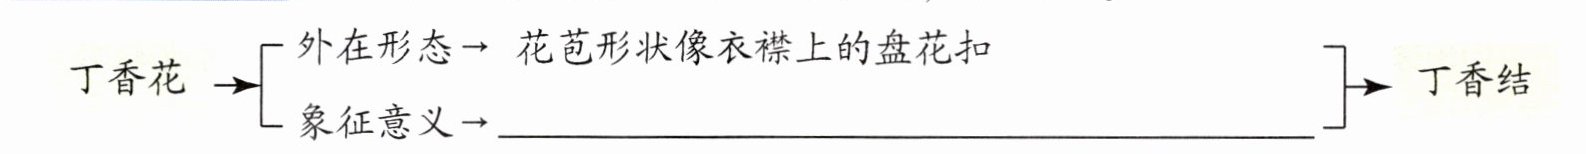 丁香花 → 外在形态→ 花苞形状像衣襟上的盘花扣
象征意义→
→ 丁香结